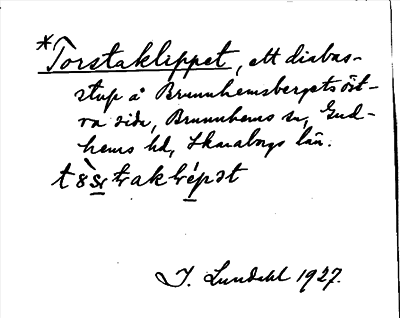 *Torstaklippet, ett diabas-
stup å Brunnhemsbergets öst-
ra sida, Brunnhems sn, Gud-
hems hd, Skaraborgs län.
J. Lundahl 1927.